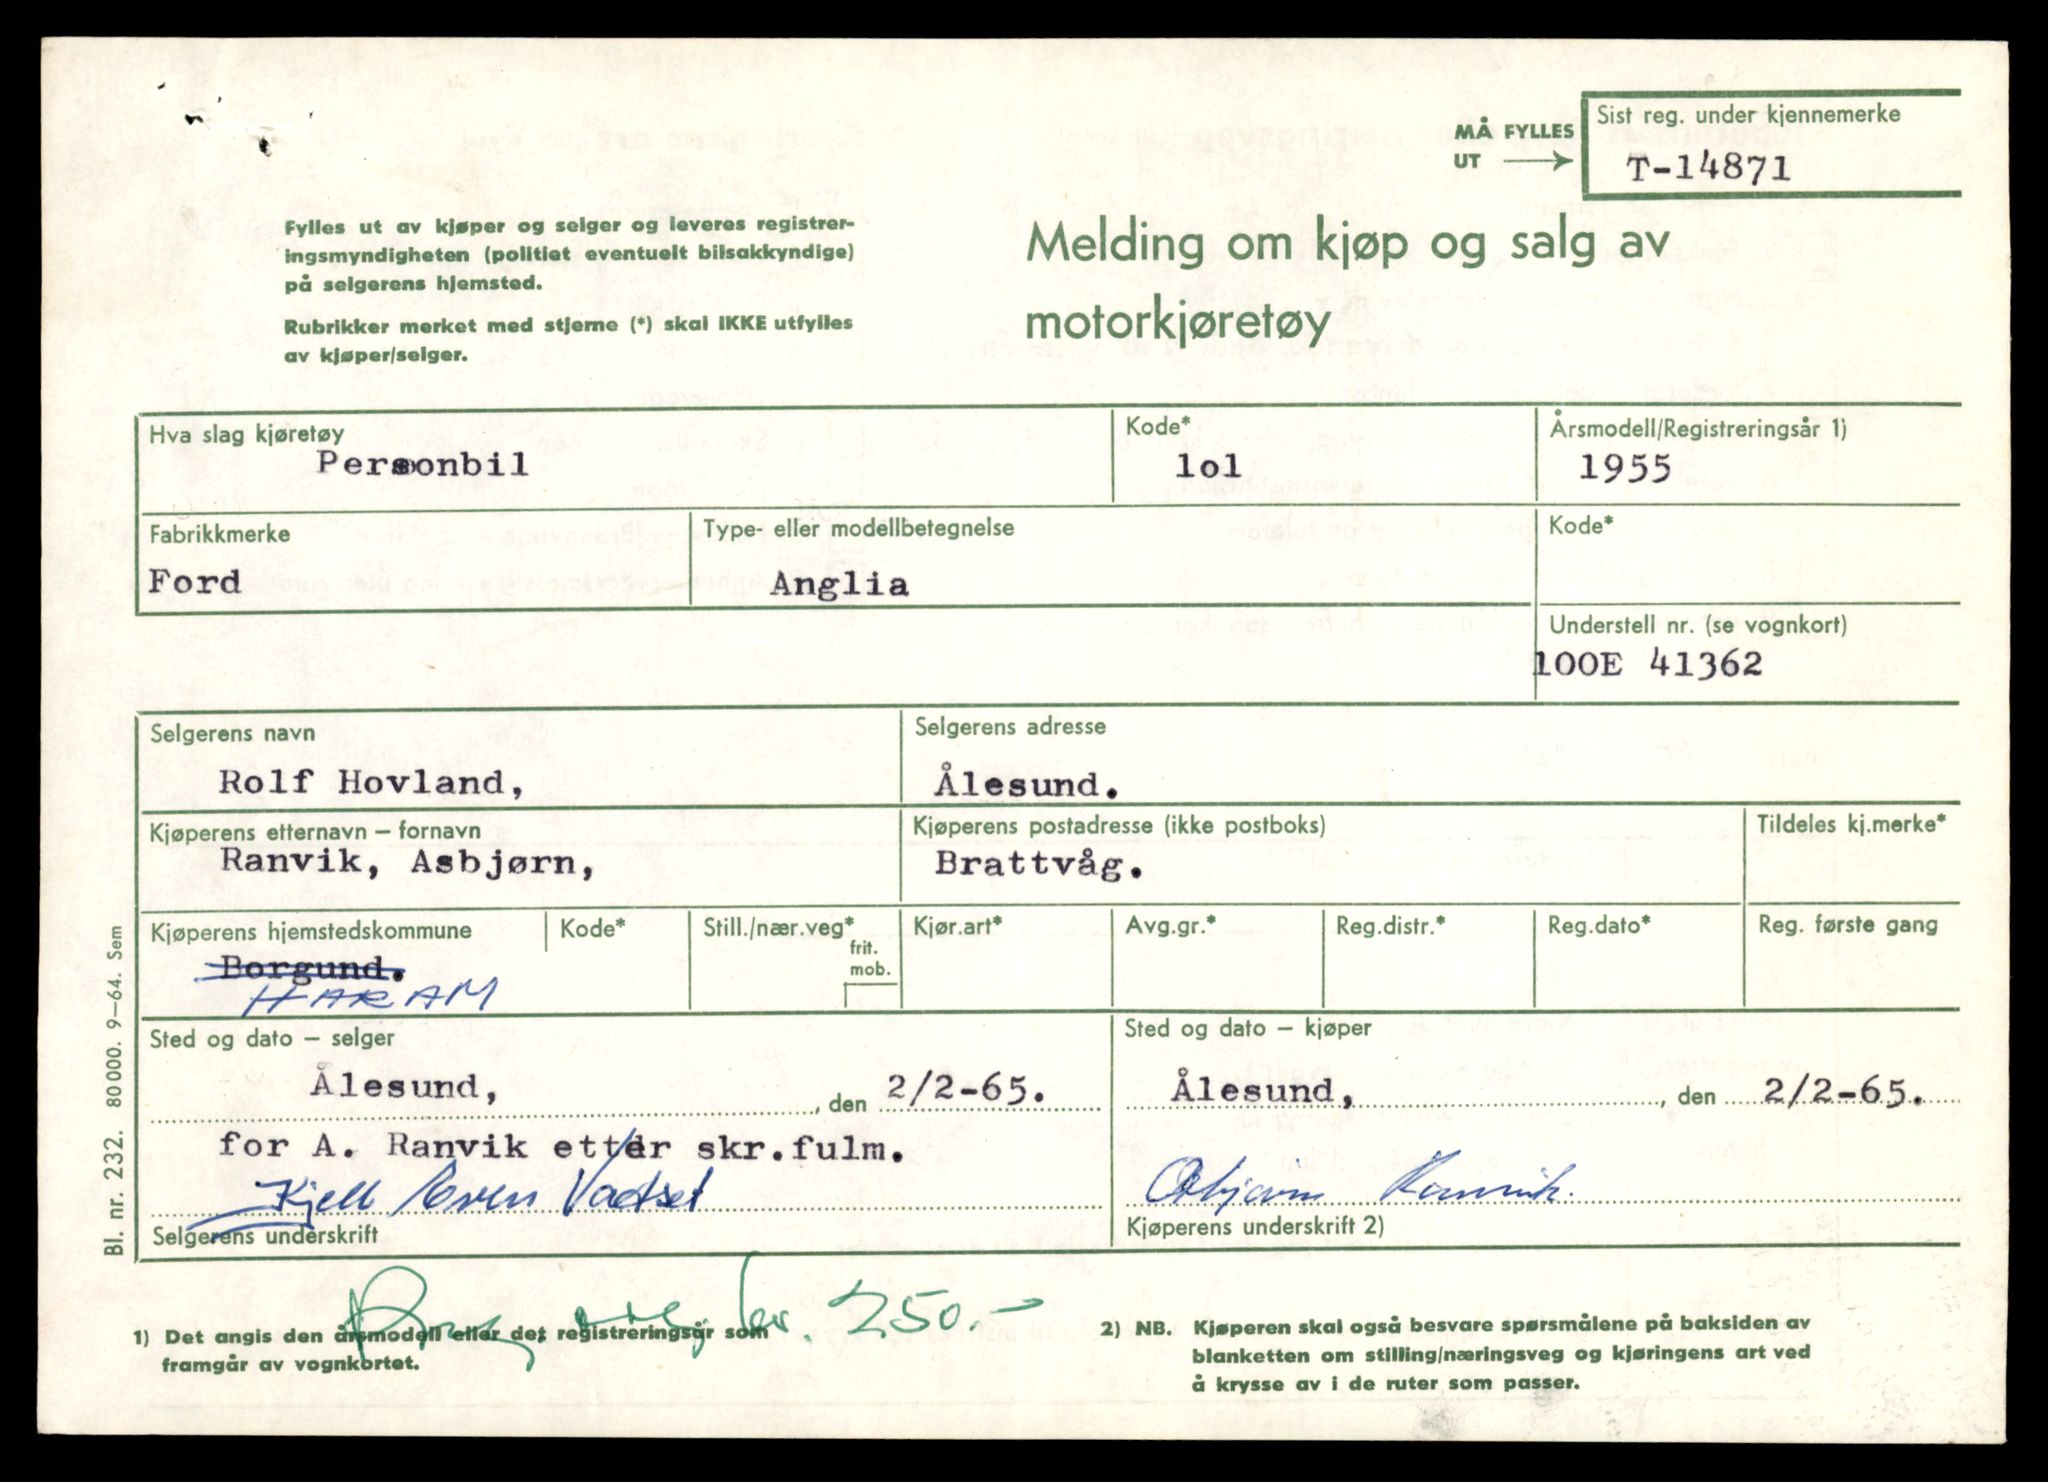 MÅ FYLLES
UT →
Sist reg. under kjennemerke
T-14871
Fylles ut av kjøper og selger og leveres registrer-
ingsmyndigheten (politiet eventuelt bilsakkyndige)
på selgerens hjemsted.
Rubrikker merket med stjerne (*) skal IKKE utfylles
av kjøper/selger.
Melding om kjøp og salg av
motorkjøretøy
Hva slag kjøretøy
Personbil
Kode*
lol
Årsmodell/Registreringsår 1)
1955
Fabrikkmerke
Ford
Type- eller modellbetegnelse
Anglia
Kode*
Understell nr. (se vognkort)
100E 41362
Selgerens navn
Rolf Hovland,
Selgerens adresse
Ålesund.
Kjøperens etternavn – fornavn
Ranvik, Asbjørn,
Kjøperens postadresse (ikke postboks)
Brattvåg.
Tildeles kj.merke*
Kjøperens hjemstedskommune
Borgund.
HARAM
Kode*
Still./nær.veg*
frit.
mob.
Kjør.art*
Avg.gr.*
Reg.distr.*
Reg.dato*
Reg. første gang
Sted og dato – selger
Ålesund, , den 2/2-65.
for A. Ranvik etter skr.fulm.
Kjell Vadset
Selgerens underskrift
Sted og dato – kjøper
Ålesund, , den 2/2-65.
Asbjørn Ranvik.
Kjøperens underskrift 2)
kr. 250.-
1) Det angis den årsmodell eller det registreringsår som
framgår av vognkortet.
2) NB. Kjøperen skal også besvare spørsmålene på baksiden av
blanketten om stilling/næringsveg og kjøringens art ved
å krysse av i de ruter som passer.
Bl. nr. 232. 80 000. 9–64. Sem